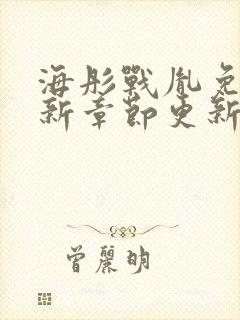 海彤戰胤免
新章節更新
曾麗明